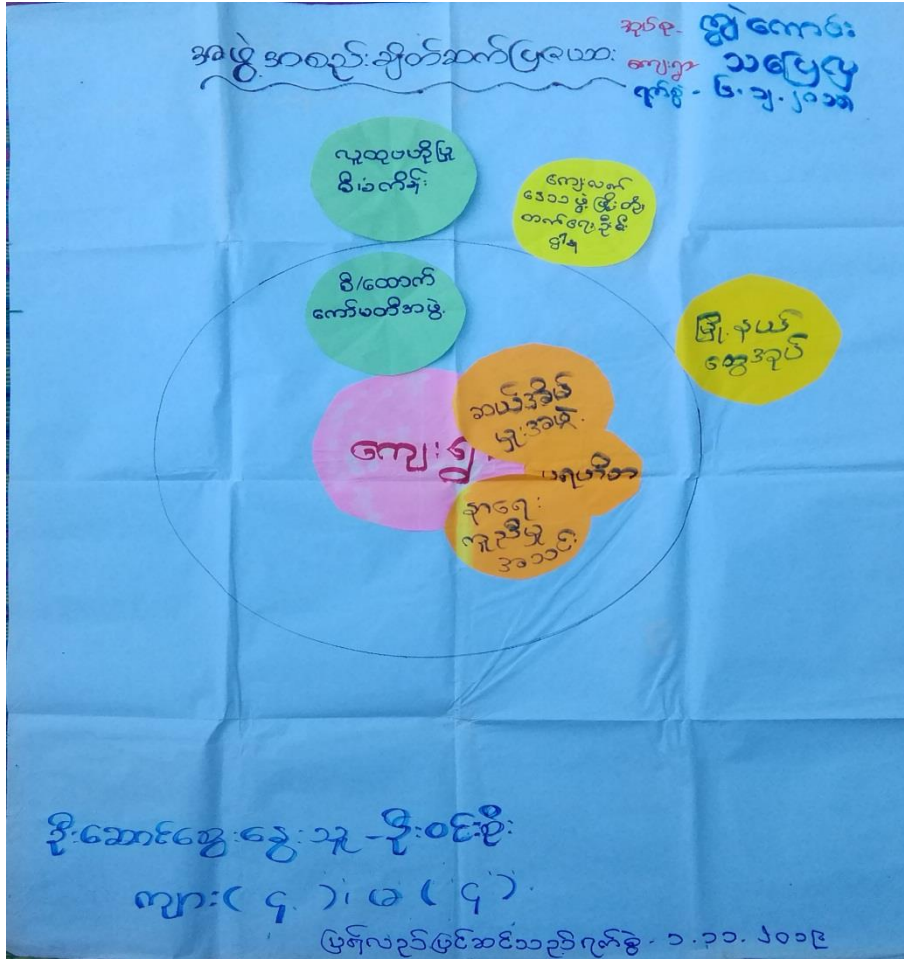 အဖွဲ့အစည်းချိတ်ဆက်ပြဇယား
အုပ်စု - ကျွဲကောင်း
ကျေးရွာ - သပြေလှ
ရက်စွဲ -
လူထုဗဟိုပြု
စီမံကိန်း
ကျေးလက်
ဒေသဖွံ့ဖြိုးတိုး
တက်ရေးဦးစီး
ဌာန
စီ/ထောက်
ကော်မတီအဖွဲ့
မြို့နယ်
ထွေအုပ်
ဆယ်အိမ်
မှူးအဖွဲ့
ကျေးရွာ
ပရဟိတ
နာရေး
ကူညီမှု
အသင်း
ဦးဆောင်ဆွေးနွေးသူ - ဦးဝင်းစိုး
ကျား( ၄ )၊ မ ( ၄ )
ပြန်လည်ပြင်ဆင်သည့်ရက်စွဲ - ၁.၁၁.၂၀၁၉